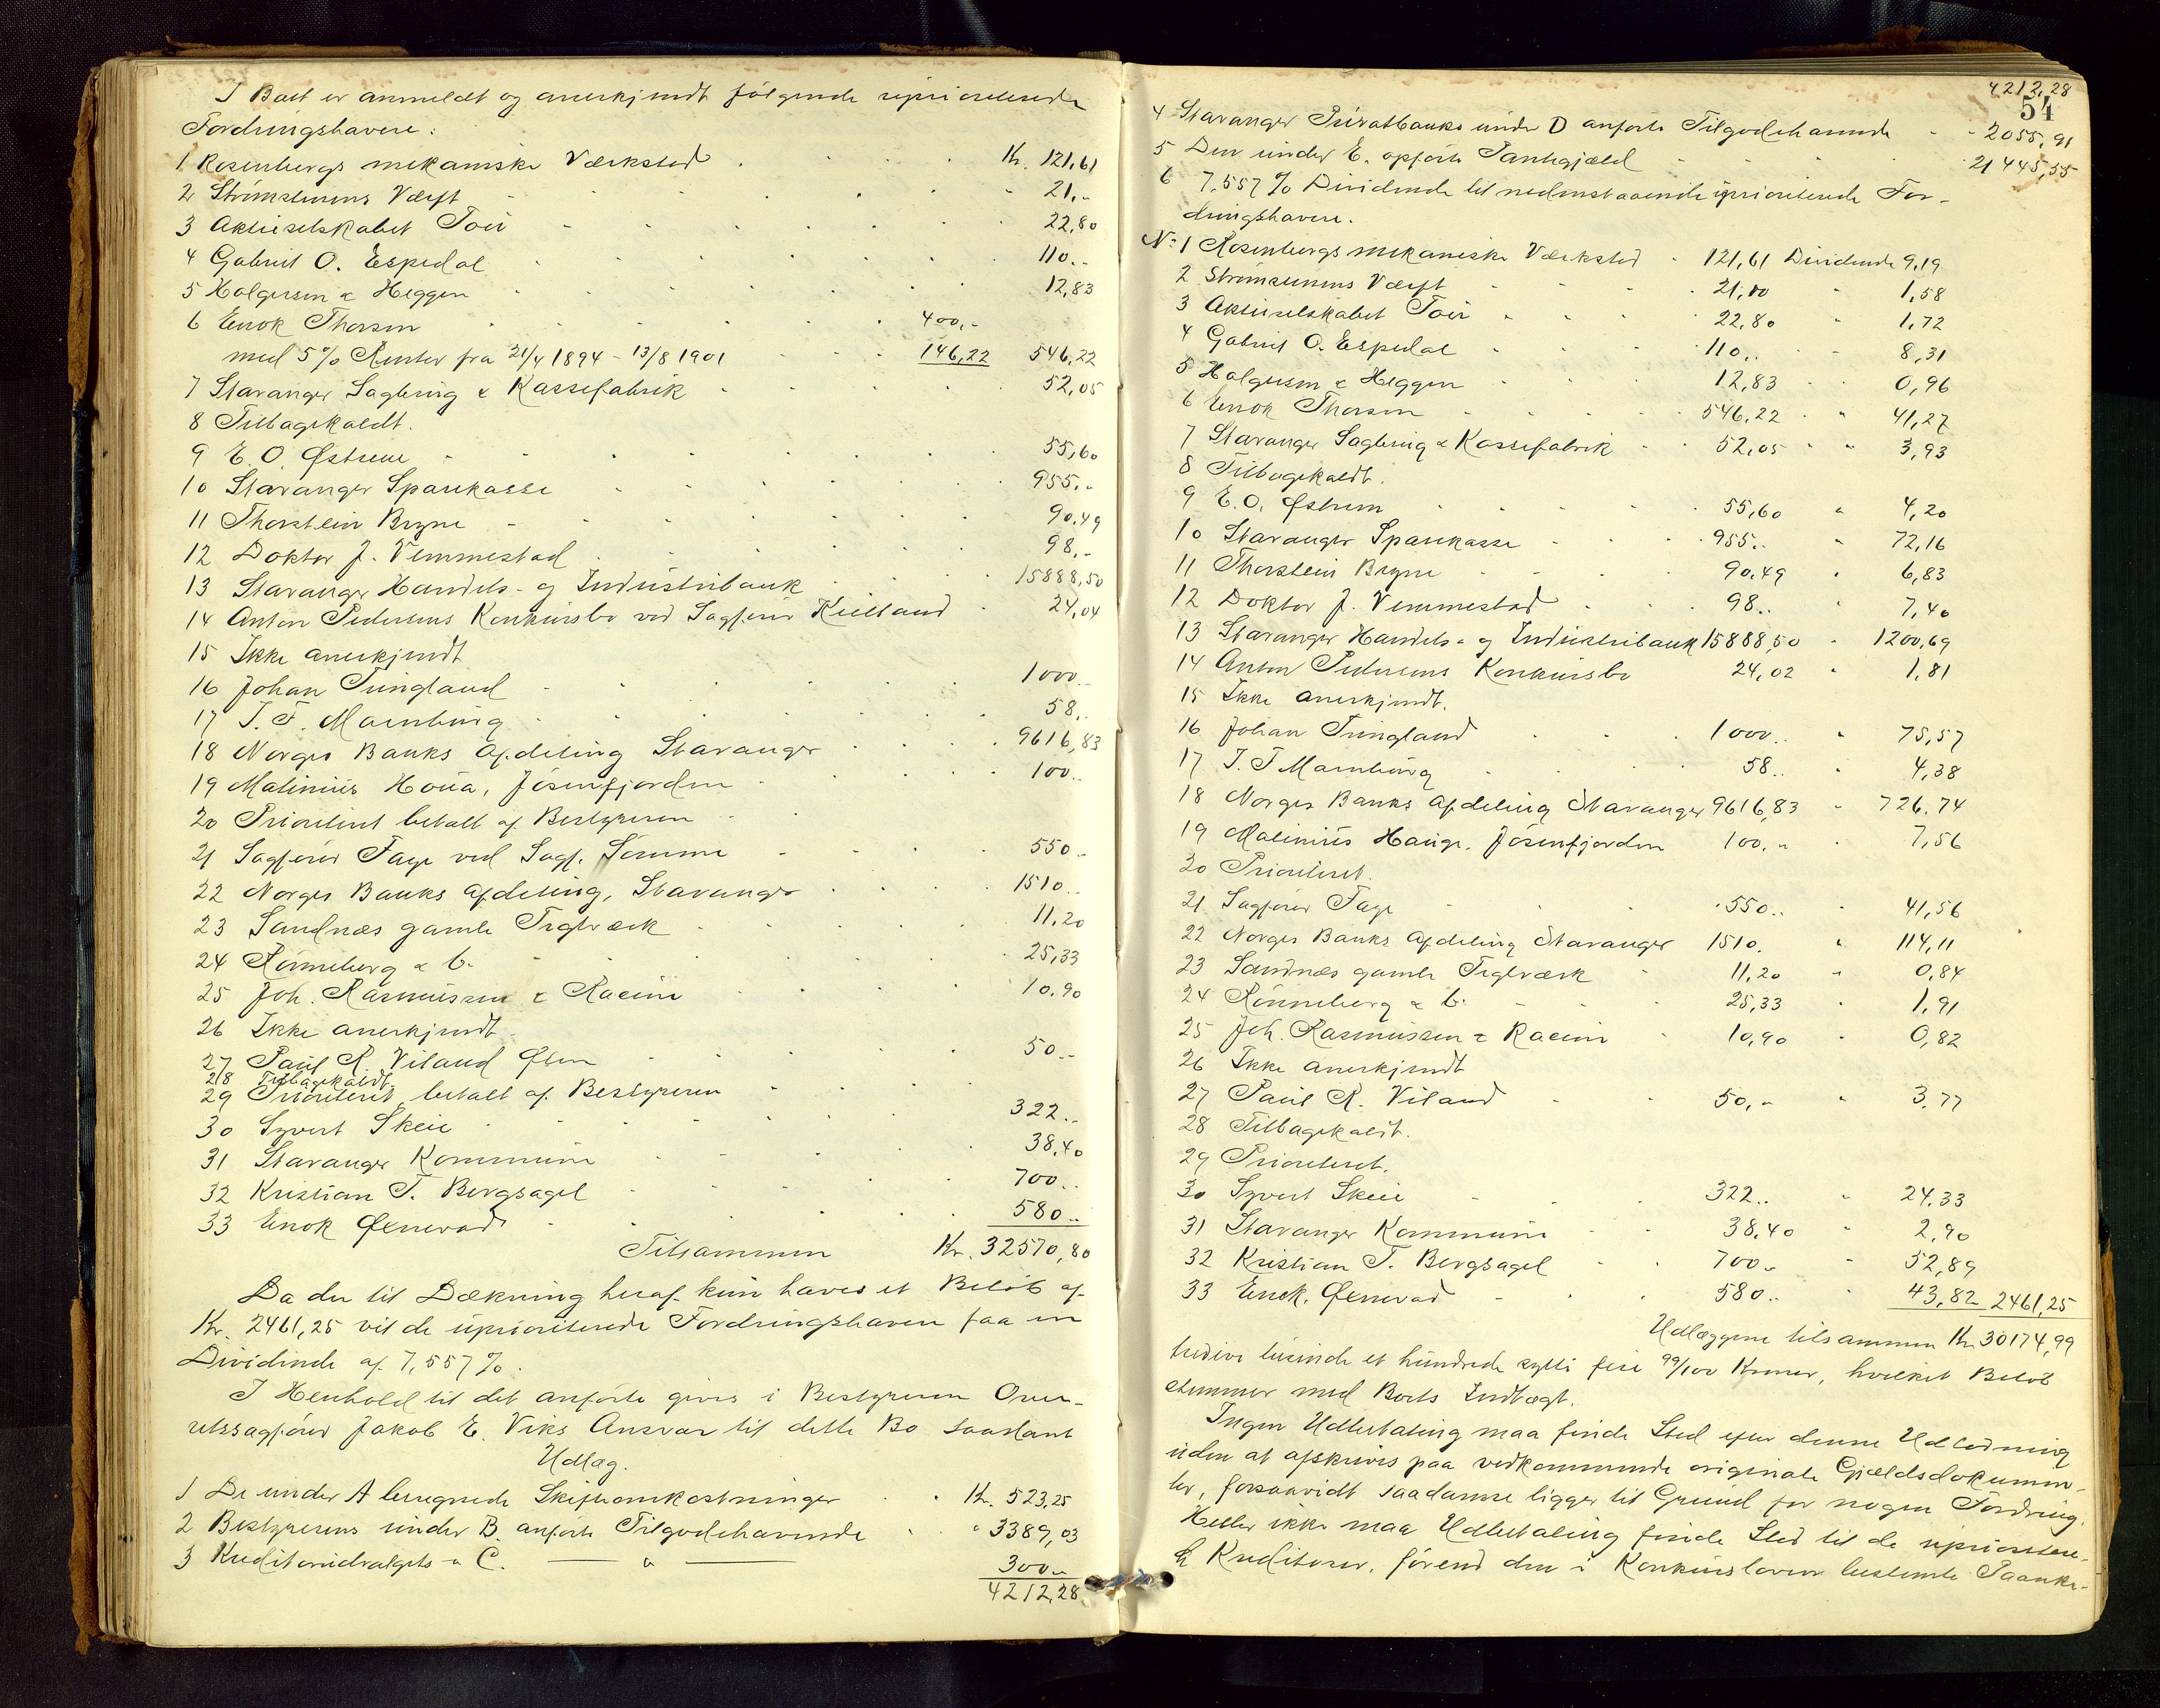 I Boet er anmeldt og anerkjendt følgende uprioriterede
Fordringshavere:
1 Rosenbergs mekaniske Værksted Kr. 121,61
2 Strømsteens Værft 21,-
3 Aktieselskabet Toii 22,80
4 Gabriel O. Espedal 110,-
5 Holgersen & Heggen 12,83
6 Enok Thorsen 400,-
med 5% Renter fra 21/4 1894 - 13/8 1901 146,22 546,22
7 Stavanger Sagbrug & Kassefabrik 52,05
8 Tilbagekaldt.
9 E. O. Østrem 55,60
10 Stavanger Sparekasse 955,-
11 Thorstein Bryne 90,49
12 Doktor J. Vemmestad 98,-
13 Stavanger Handels- og Industribank 15888,50
14 Anton Pedersens Konkursbo ved Sagfører Kielland 24,04
15 Ikke anerkjendt
16 Johan Tungland 1000..
17 T. F. Marnburg 58..
18 Norges Banks Afdeling Stavanger 9616,83
19 Malinius Houa, Jøsenfjorden 100..
20 Prioritert betalt af Bestyreren
21 Sagfører Fage ved Sagf. Sømme 550..
22 Norges Banks Afdeling, Stavanger 1510..
23 Sandnæs gamle Teglværk 11,20
24 Rønneberg & C. 25,33
25 Joh. Rasmussen & Racine 10,90
26 Ikke anerkjendt.
27 Paul R. Viland Øen 50..
28 Tilbagekaldt.
29 Prioritert, betalt af Bestyreren
30 Syvert Skeie 322..
31 Stavanger Kommune 38,40
32 Kristian T. Bergsagel 700..
33 Enok Ølnevad 580..
Tilsammen Kr. 32570,80
Da der til Dækning heraf kun haves et Beløb af
Kr. 2461,25 vil de uprioriterede Fordringshavere faa en
Dividende af 7,557%.
I Henhold til det anførte gives i Bestyreren Over-
retssagfører Jakob E. Viks Ansvar til dette Bo saadant
Udlæg.
1 De under A beregnede Skifteomkostninger Kr. 523,25
2 Bestyrerens under B. anførte Tilgodehavende " 3389,03
3 Kreditorudvalgets - " C. — " — 300..
4212,28
4212,28
54
4 Stavanger Privatbanks under D anførte Tilgodehavende 2055,91
5 Den under E. opførte Pantegjæld 21445,55
6 7,557% Dividende til nedenstaaende uprioriterede For-
dringshavere.
No 1 Rosenbergs mekaniske Værksted 121,61 Dividende 9,19
2 Strømsteens Værft 21,00 " 1,58
3 Aktieselskabet Toii 22,80 " 1,72
4 Gabriel O. Espedal 110,. 8,31
5 Holgersen & Heggen 12,83 0,96
6 Enok Thorsen 546,22 " 41,27
7 Stavanger Sagbrug & Kassefabrik 52,05 " 3,93
8 Tilbagekaldt.
9 E. O. Østrem 55,60 " 4,20
10 Stavanger Sparekasse 955.. " 72,16
11 Thorstein Bryne 90.49 " 6,83
12 Doktor J. Vemmestad 98.. " 7,40
13 Stavanger Handels- og Industribank 15888,50 " 1200,69
14 Anton Pedersens Konkursbo 24,02 " 1,81
15 Ikke anerkjendt.
16 Johan Tungland 1000.. " 75,57
17 T. F Marnburg 58.. " 4,38
18 Norges Banks Afdeling Stavanger 9616,83 " 726.74
19 Malinius Hauge. Jøsenfjorden 100,- 7,56
20 Prioritert.
21 Sagfører Fage 550.. " 41,56
22 Norges Banks Afdeling Stavanger 1510. " 114,11
23 Sandnæs gamle Teglværk 11,20 " 0,84
24 Rønneberg & C. 25,33 " 1,91
25 Joh. Rasmussen & Racine 10,90 " 0,82
26 Ikke anerkjendt
27 Paul R. Viland 50,- " 3.77
28 Tilbagekaldt.
29 Prioritert.
30 Syvert Skeie 322.. " 24.33
31 Stavanger Kommune 38,40 " 2,90
32 Kristian T. Bergsagel 700.. " 52,89
33 Enok. Ølnevad 580.. " 43,82 2461,25
Udlæggene tilsammen Kr. 30174,99
tredive tusinde et hundrede sytti fire 99/100 Kroner, hvilket Beløb
stemmer med Boets Indtægt.
Ingen Udbetaling maa finde Sted efter denne Udlodning
uden at afskrives paa vedkommende originale Gjældsdokumen-
ter, forsaavidt saadanne ligger til Grund for nogen Fordring.
Heller ikke maa Udbetaling finde Sted til de uprioritere-
de Kreditorer, førend den i Konkursloven bestemte Paanke-